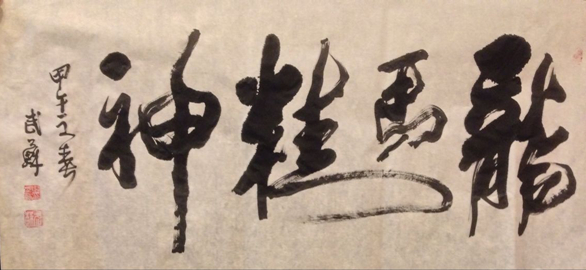 龍馬精神
甲午之春
武